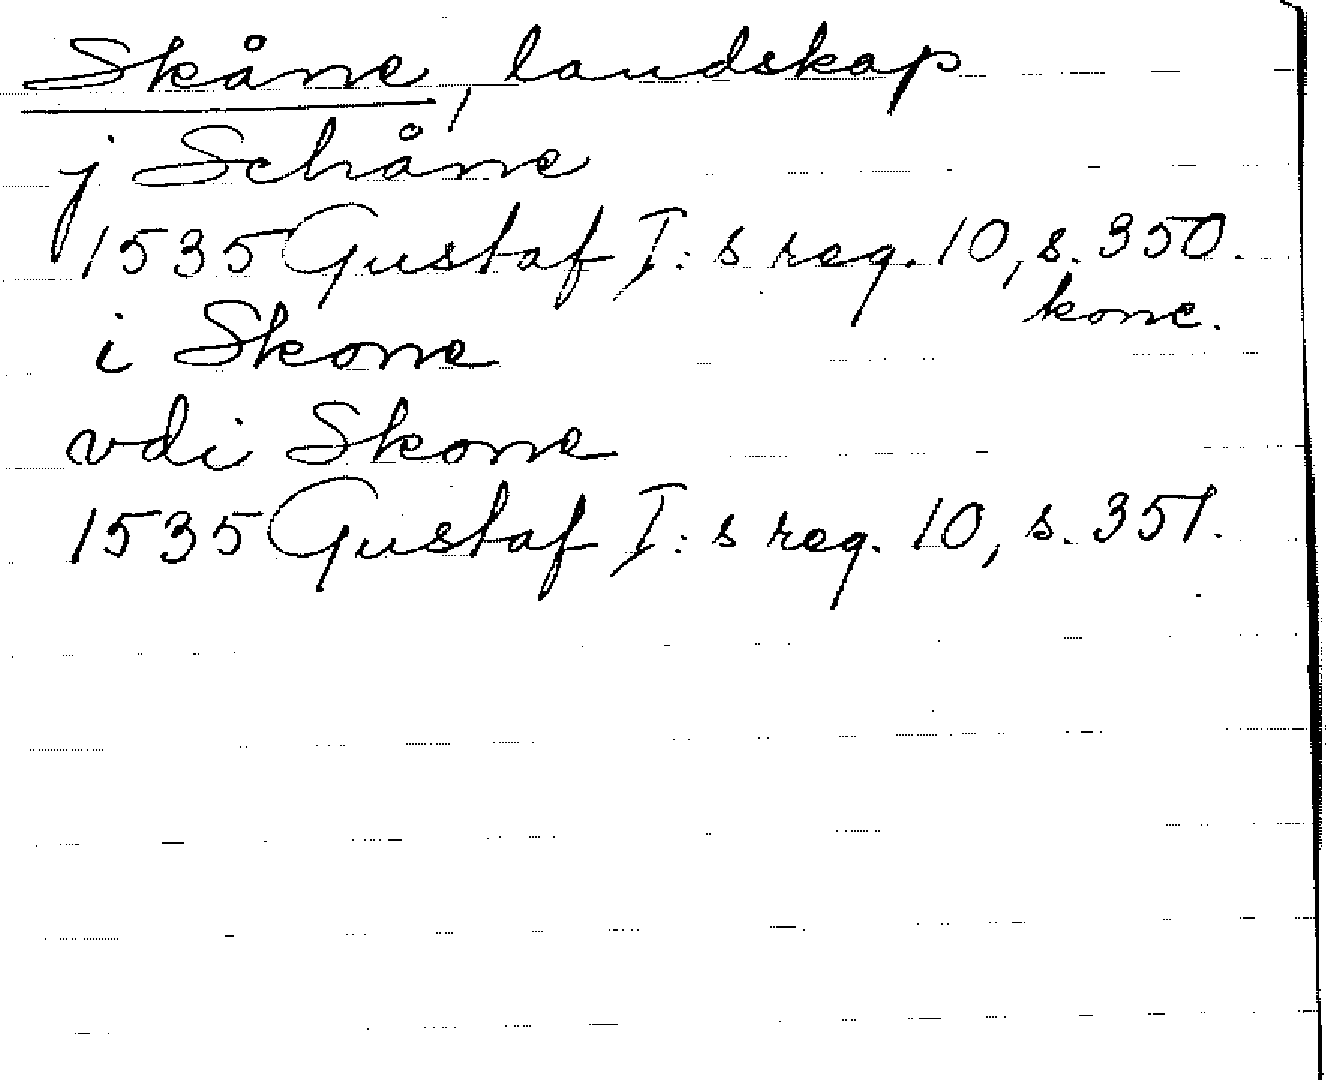 Skåne, landskap
j Schåne
1535 Gustaf I:s reg. 10, s. 350.
konc.
i Skone
vdi Skone
1535 Gustaf I:s reg. 10, s. 351.